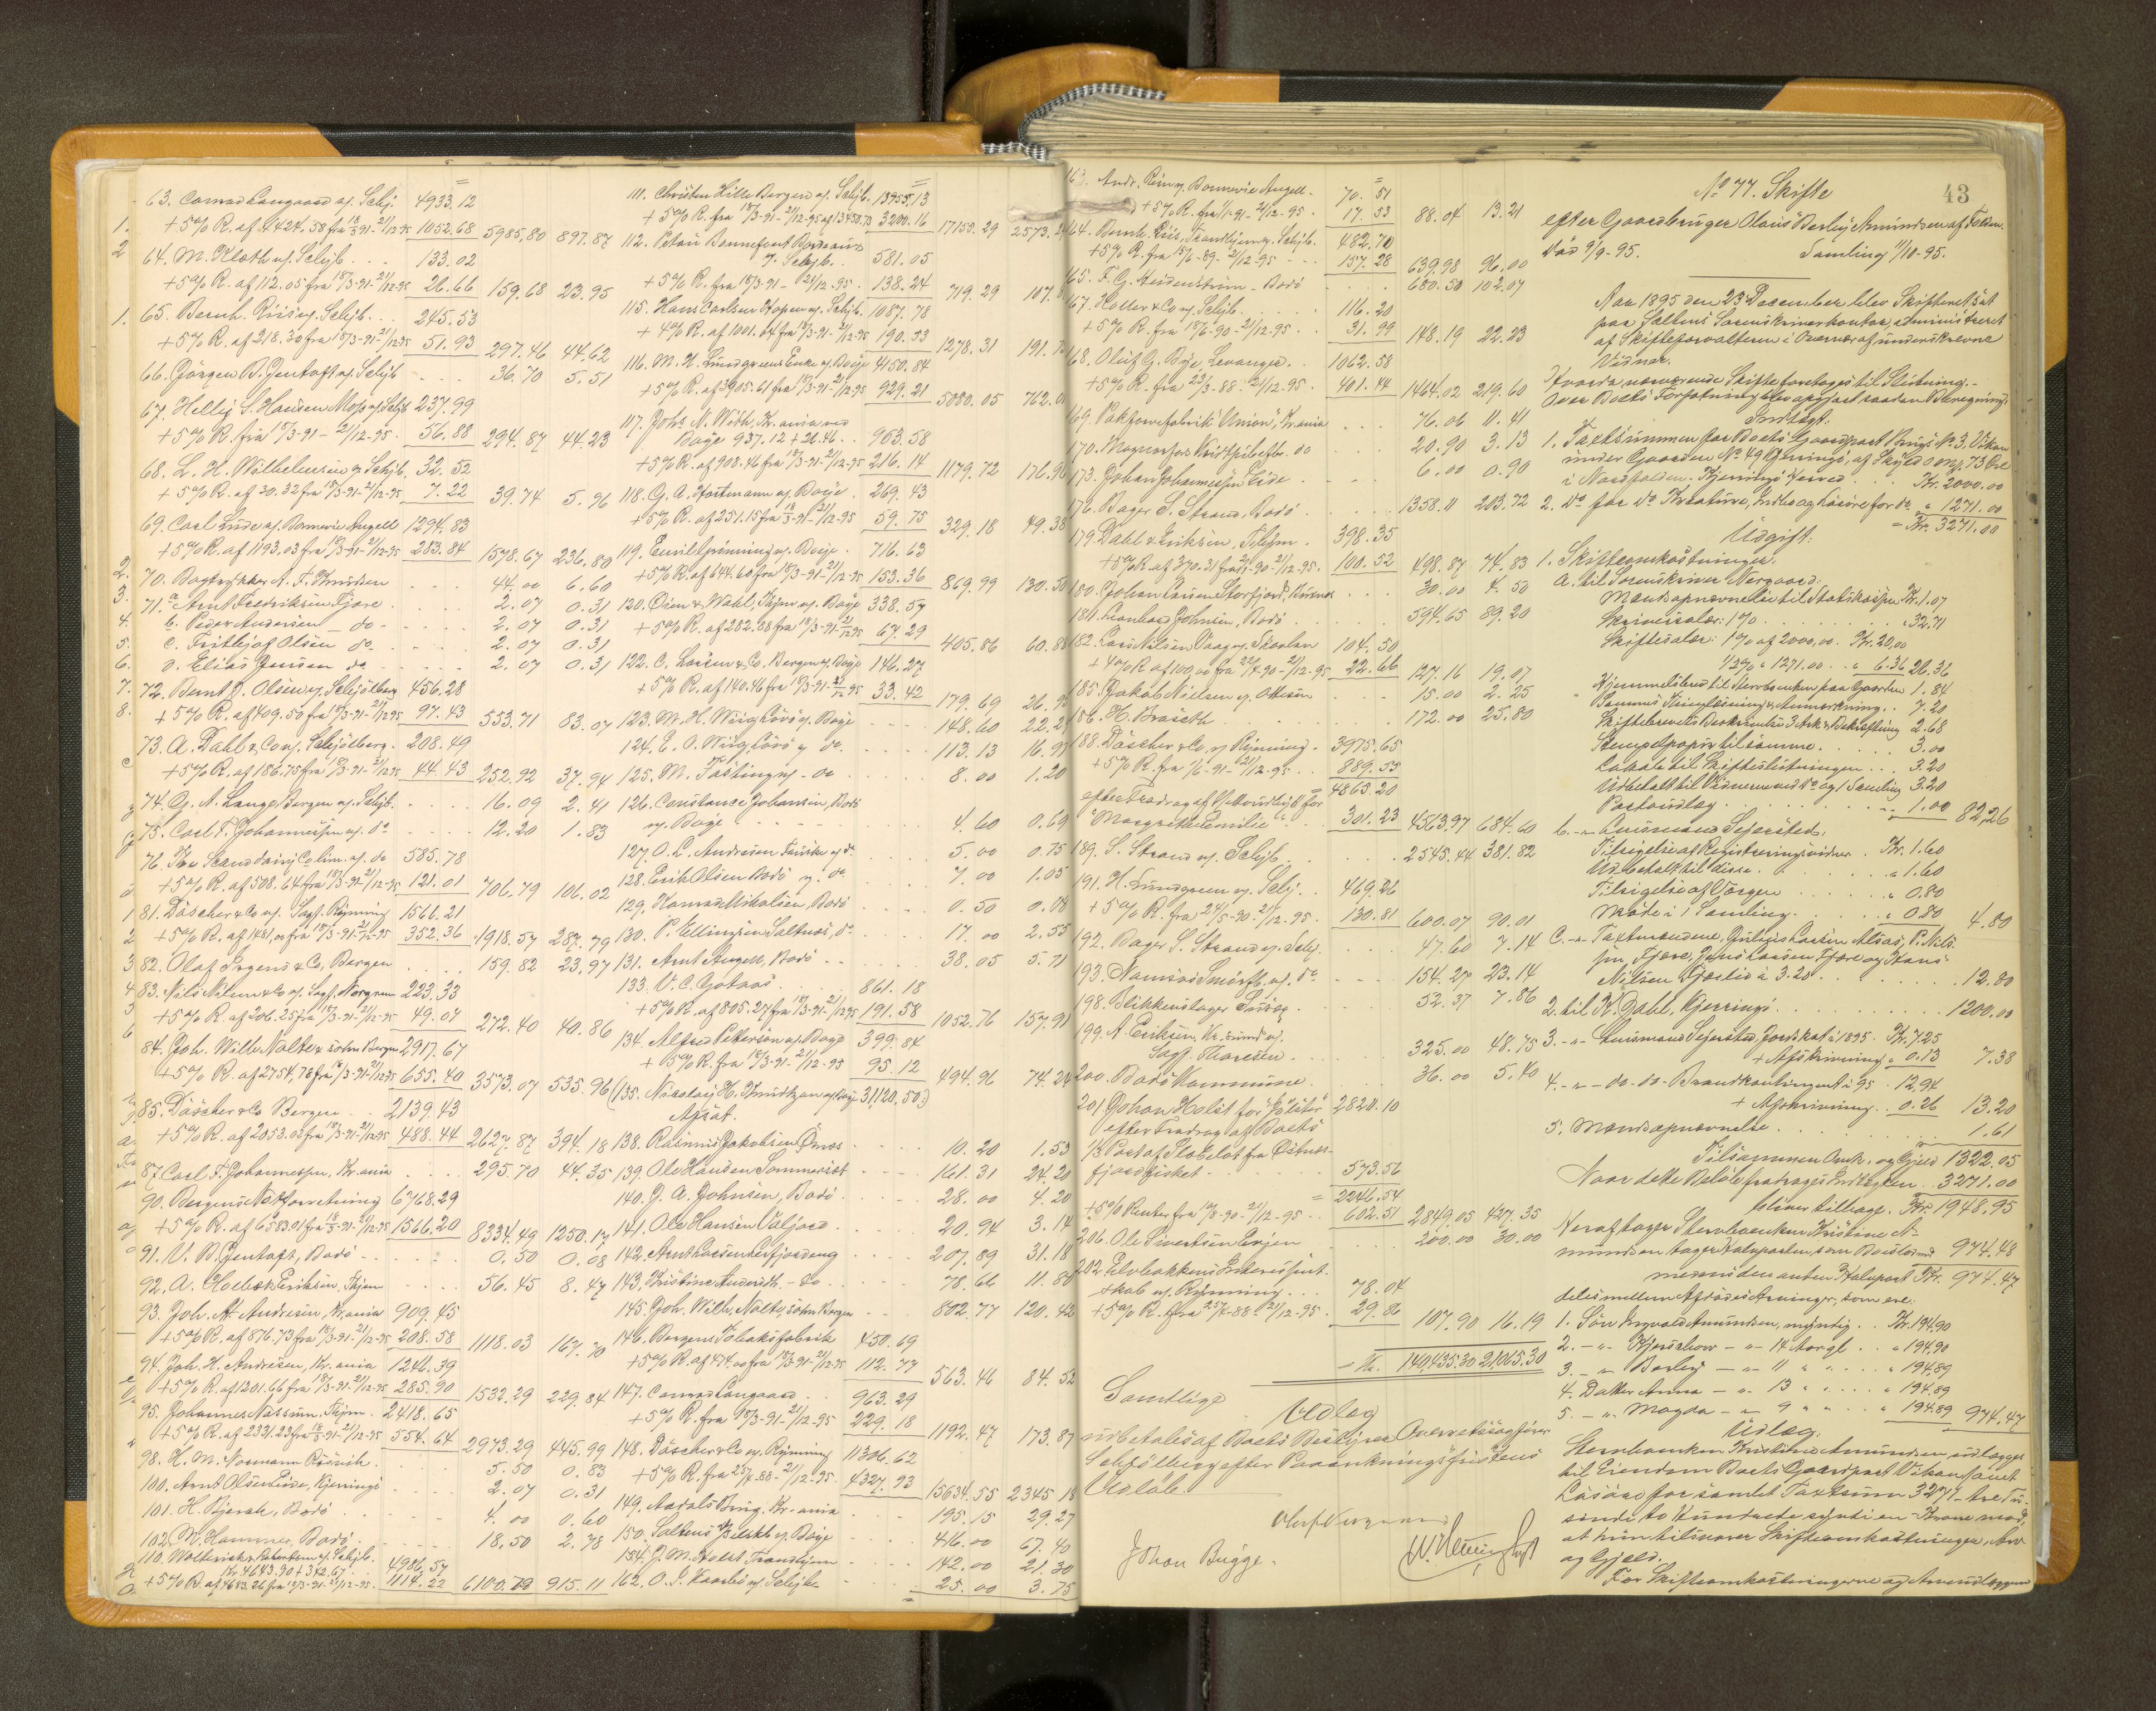 63. Conrad Langaard v/ Selj. 4933.12
1. + 5% R. af 4424.58 fra 18/3-91-21/12-95 1052.68 5985.80 897.87
2 64. M. Kloth v/ Seljb. . . . 133.02
+ 5% R. af 112.05 fra 18/3-91-21/12-95 26.66 159.68 23.95
1. 65. Bernh. Riis v/ Seljb. . . 245.53
+ 5% R. af 218.30 fra 18/3-91-21/12-95 51.93 297.46 44.62
66. Jørgen B. Gentoft v/ Seljb - - - 36.70 5.51
67. Hellig S. Hansen Moss v/ Seljb 237.99
+ 5% R. fra 18/3-91 - 21/12-95. 56.88 294.87 44.23
68. L. H. Wilhelmsen v/ Seljb. 32.52
+ 5% R. af 30.32 fra 18/3-91-21/12-95 7.22 39.74 5.96
69. Carl Lude v/ Bonnevie Angell 1294.83
+ 5% R. af 1193.03 fra 18/3-91-21/12-95 283.84 1578.67 236.80
2. 70. Bogtrykker A. F. Knudsen 44.00 6.60
3. 71. a Arnt Fredriksen Fjære . 2.07 0.31
4. b. Peder Andersen - do - 2.07 0.31
5. c. Fritljof Olsen do 2.07 0.31
6. d. Elias Jensen do 2.07 0.31
7. 72. Bernt J. Olsen v/ Seljølberg 456.28
8. + 5% R. af 409.50 fra 18/3-91-21/12-95 97.43 553.71 83.07
73. A. Dahl & Co v/ Seljölberg. 208.49
+ 5% R. af 186.75 fra 18/3-91-21/12-95 44.43 252.92 37.94
74. O. A. Lange, Bergen v/ Seljb. 16.09 2.41
75. Carl F. Johannessen v/ do 12.20 1.83
76. The Scand Dairy C. lim. v/ do 585.78
+ 5% R. af 508.64 fra 18/3-91-21/12-95 121.01 706.79 106.02
81. Däscher & Co v/ Sagf. Rynning 1566.21
+ 5% R. af 1481.00 fra 18/3-91-21/12-95 352.36 1918.57 287.79
82. Olaf Irgens & Co, Bergen 159.82 23.97
83. Nils Nilsen & Co v/ Sagf. Norgren 223.33
+ 5% R. af 206.25 fra 18/3-91-21/12-95 49.07 272.40 40.86
84. Joh. Wilh. Nolte & søhn Bergen 2917.67
+ 5% R. af 2754.78 fra 18/3-91-21/12-95 655.40 3573.07 535.96
85. Däscher & Co Bergen . . 2139.43
+ 5% R. af 2053.03 fra 18/3-91-21/12-95 488.44 2627.87 394.18
87. Carl F. Johannessen, Kr.ania 295.70 44.35
90. Bergens Notforretning 6768.29
+ 5% R. af 6583.01 fra 18/3-91-21/12-95 1566.20 8334.49 1250.17
91. V. B. Gentoft, Bodö - 0.50 0.08
92. A. Holbæk Eriksen, Thjem 56.45 8.47
93. Joh. H. Andresen, Kr.ania 909.45
+ 5% R. af 876.73 fra 18/3-91-21/12-95 208.58 1118.03 167.70
94. Joh. H. Andresen, Kr.ania 1246.39
+ 5% R. af 1201.66 fra 18/3-91-21/12-95 285.90 1532.29 229.84
95. Johannes Nassum, Thjem. 2418.65
+ 5% R. af 2331.23 fra 18/3-91-21/12-95 554.64 2973.29 445.99
98. H. M. Normann Rösvik. 5.50 0.83
100. Arnt Olsen Eide, Kjerringö 2.07 0.31
101. H. Kjersch, Bodö . 4.00 0.60
102. M. Hammer, Bodö. 18.50 2.78
110. Wollerich & Robertson v/ Seljb.
Kr. 4643.90 + 342.67 4986.57
+ 5% R. af 4683.26 fra 18/3-91-21/12-95. 1114.22 6100.79 915.11
111. Christen Hille Bergen v/ Seljb. 13955.13
+ 5% R. fra 18/3-91-21/12-95 af 13450.73 3200.16 17155.29 2573.
112. Petau Bonnefont Bordeaux
v. Seljb. . 581.05
+ 5% R. fra 18/3-91 - 21/12-95. 138.24 719.29 107.
115. Hans Carlsen Hopen v/ Seljb. 1087.78
+ 4% R. af 1001.04 fra 18/3-91-21/12-95 190.53 1278.31 191.
116. M. H. Lundgreens Enke v/ Boije 4150.84
+ 5% R. af 3905.61 fra 18/3-91-21/12-95 929.21 5080.05 762.01
117. Johs. N. With, Kr.ania ved
Boije 937.12 + 26.46 . . 963.58
+ 5% R. af 908.46 fra 18/3-91-21/12-95 216.14 1179.72 176.96
118. G. A. Hartmann v/ Boije. 269.43
+ 5% R. af 251.15 fra 18/3-91-21/12-95 59.75 329.18 49.38
119. Emil Grönning v/ Boije. 716.63
+ 5% R. af 644.60 fra 18/3-91-21/12-95 153.36 869.99 130.50
120. Öien & Wahl, Thjem v/ Boije 338.57
+ 5% R. af 282.88 fra 18/3-91-21/12-95 67.29 405.86 60.88
122. C. Larsen & Co. Bergen v/ Boije 146.27
+ 5% R. af 140.46 fra 18/3-91-21/12-95 33.42 179.69 26.9
123. M. H. Wiig Lövö v/ Boije 148.60 22.2
124. E. O. Wiig, Lövö v/ do. 113.13 16.97
125. M. Tösting v/ - do 8.00 1.20
126. Constance Johansen, Bodö
v/ Boije 4.60 0.69
127. O. L. Andresen Fauske v/ do 5.00 0.75
128. Erik Olsen Bodö v. do 7.00 1.05
129. Konrad Mikalsen, Bodö 0.50 0.08
130. P. Ellingsen Saltnæs, do 17.00 2.55
131. Arnt Angell, Bodö - - 38.05 5.71
133. V. C. Gotaas . . 861.18
+ 5% R. af 805.27 fra 18/3-91-21/12-95 191.58 1052.76 157.91
134. Alfred Pettersen v/ Boije 399.84
+ 5% R. fra 18/3-91-21/12-95 95.12 494.96 74.24
(135. Nicolay H. Knudtzon v/ Boije 31,120.50)
138. Rasmus Jakobsen Örnes 10.20 1.53
139. Ole Hansen Sommerset 161.31 24.20
140. J. A. Johnsen, Bodö . 28.00 4.20
141. Ole Hansen Valjord. 20.94 3.14
142. Arnt Larsen Leifjordeng 207.89 31.18
143. Kristine Anderdtr. - do 78.66 11.80
145. Joh. Wilh. Nolte, søhn Bergen 802.77 120.42
146. Bergens Tobaksfabrik 450.69
+ 5% R. af 474.00 fra 18/3-91-21/12-95 112.77 563.46 84.52
147. Conrad Langaard . . 963.29
+ 5% R. fra 18/3-91-21/12-95 229.18 1192.47 173.87
148. Däscher & Co v/ Rynning 11306.62
+ 5% R. fra 25/4-88-21/12-95. 4327.93 15634.55 2345.18
149. Aadals Brug. Kr.ania 195.15 29.27
150. Saltens Bilskb v/ Boije 416.00 67.40
154. J. M. Holst Trondhjem 142.00 21.30
162. O. J. Kaarbö v/ Seljb 25.00 3.75
163. Andr. Riis v/ Bonnevie Angell - 70.51
+ 5% R. fra 1/1-91-21/12-95 . 17.53 88.04 13.21
164. Bernh. Riis, Trondhjem v. Seljb. 482.70
+ 5% R. fra 15/6-89-21/12-95 - - 157.28 639.98 96.00
165. F. G. Heidenstrüm - Bodö 680.50 102.07
167. Holler & Co v/ Seljb. 116.20
+ 5% R. fra 18/6-90-21/12-95 . . 31.99 148.19 22.23
168. Oluf G. Bye Levanger. 1062.58
+ 5% R. fra 23/3-88-21/12-95 . 401.44 1464.02 219.60
169. Pakforefabrik "Union", Kr.ania 76.06 11.41
20.90 3.13
173. Johan Johannessen Eide. 6.00 0.90
176. Bager S. Strand, Bodö. 1358.11 203.72
179. Dahl & Eriksen, Thjem. 398.35
+ 5% R. af 370.31 fra 90-21/12-95. 100.52 498.87 74.83
180. Johan Larsen Storfjord, 30.00 4.50
181. Leonhard Johnsen, Bodö 594.65 89.20
182. Lars Nilsen Vaag v. Skorlan 104.50
+ 4% R. af 100.00 fra 22/4-90-21/12-95 22.66 127.16 19.07
185. Jakob Nielsen v/ Ottesen 15.00 2.25
186. H. Braseth 172.00 25.80
188. Däscher & Co v/ Rynning. 3975.65
+ 5% R. fra 1/6-91-21/12-95 . . 889.55
= 4865.20
efter Fradrag af for
"Margrethe Emilie" 301.23 4563.97 684.60
189. S. Strand v/ Seljb 2545.44 381.82
191. H. Lundgreen v/ Selj. 469.26
+ 5% R. fra 24/5-90-21/12-95. 130.81 600.07 90.01
192. Bager S. Strand v. Selj. 47.60 7.14
193. Namsos Smörfb. v/ do 154.27 23.14
198. Blikkenslager 52.37 7.86
199. A. Eriksen, Kr.sund v/
Sagf. Thoresen. 325.00 48.75
200. Bodö Kommune. 36.00 5.40
201 Johan Holst for "Jölster" 2820.10
efter Fradrag af Boets
1/2 Part af Slagelöt fra Östnes-
fjordfisket. 573.56
= 2246.54
+ 5% Renter fra 18/8-90-21/12-95 . . 602.51 2849.05 427.35
206. Ole Sivertsen Evjen 200.00 30.00
202 Elvebakkens Interessent-
skab v/ Rynning . . . 78.04
+ 5% R. fra 25/4-88 21/12-95 . 29.86 107.90 16.19
= Kr. 140,435.30 21065.30
Samtlige Udlæg
udbetales af Boets Bestyrer Overretssagfører
Seljölberg efter Paaankningsfristens
Udløb.
Johan Bugge.
43
No 77. Skifte
efter Gaardbruger Olaus Berlig Amundsen af Vikan.
död 9/9-95. Samling 11/10-95.
Aar 1895 den 23 December blev Skifteret sat
paa Saltens Sorenskriverkontor, administreret
af Skifteforvalteren i Overvær af underskrevne
Vidner.
Hvorda nærværende Skifte foretoges til Slutning.-
Over Boets Forfatning blev opgjort saadan Beregning:
Indtægt.
1. Taxtsummen for Boets Gaardpart Brugs No 3, Vikan
under Gaarden No 49 Kjerringö, af Skyld 0 Mk. 73 Öre
i Nordfolden-Kjerringö Herred . . Kr. 2000.00
2. do for do Kreature, Indbo og Løsøre for do " 1271.00
= Kr. 3271.00
Udgift:
1. Skifteomkostninger.
a. til Sorenskriver Norgaard:
Mandsopnævnelse til Statskassen Kr. 1.07
Skriversalær: 1% . . . " 32.71
Skiftesalær: 1% af 2000,00. Kr. 20,00
1/2% " 1271.00 . . " 6.36 26.36
Hjemmelsbrev til Stervboenken paa Gaarden 1.84
Sammes Thinglæsning & Anmærkning. . 7.20
Skiftebrevets Beskrivelse 3 Ark & Bekræftning 2.68
Stempelpapir til samme . . . . 3.00
Lokale til Skifteslutningen . . . 3.20
Udbetalt til Vidnerne ved do og 1 Samling 3.20
Postudlæg . . . . 1.00 82,26
b. - " - Lensmand Sejersted:
Tilsigelse af Registreringsvidner . Kr. 1.60
Udbetalt til disse . . " 1.60
Tilsigelse af Værgen . . " 0.80
Møde i 1 Samling. . " 0.80 4.80
c. - " - Taxtmændene, Larsen Alsos, P. Nils-
sen, Fjære, Jens Larsen Fjære og Hans
Nilsen Fjærlid à 3.20. . . 12.80
2. til K. Dahl, Kjerringö. . . . 1200.00
3. - " - Lensmand Sejersted, Jordskat i 1895. Kr. 7.25
+ Afskrivning " 0.13 7.38
4. - " - do. do. Brandkontingent i 95 . 12.94
+ Afskrivning . . 0.26 13.20
5. Mandsopnævnelse . . . 1.61
Tilsammen Omk. og Gjæld 1322.05
Naar dette Beløb fradrages Indtægten . . 3271.00
bliver tilbage. Kr. 1948.95
Heraf tager Stervboenken Kristine A-
mundsen Halvparten som Boeslod 974.48
mens den anden Halvpart Kr. 974.47
deles mellem Afdødes Arvinger, som ere:
1. Sön Ingvald Amundsen, myndig. . Kr. 194.90
2. - " - Hjerschow - " - 14 Aar gl. . . " 194.90
3. - " - Berlig - " - 11 " " . . . " 194.89
4. Datter Anna - " - 13 " " . . . " 194.89
5. - " - Magda - " - 9 " " . . " 194.89 974.47
Udlæg:
Stervboenken Kristine Amundsen udlægges
til Eiendom Boets Gaardpart Vikan samt
Løsøre for samlet Taxtsum 3271 - tre Tu-
sinde to Hundrede sytti en - Krone mod,
at hun tilsvarer Skifteomkostninger, Arv
og Gjæld.
For Skifteomkostningerne og Arveudlæggene